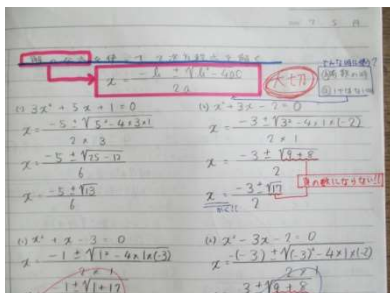 解の公式を使って2次方程式を解く
x = -b ± √b² - 4ac
2a
大切
(1) 3x² + 5x + 1 = 0
x = -5 ± √5² - 4×3×1
2 × 3
x = -5 ± √25 - 12
6
x = -5 ± √13
6
(2) x² + 3x - 2 = 0
x = -3 ± √3² - 4×1×(-2)
2 × 1
x = -3 ± √9 + 8
2
x = -3 ± √17
2
(3) x² + x - 3 = 0
x = -1 ± √1² - 4×1×(-3)
2 × 1
1 ± √1+12
(4) x² - 3x - 2 = 0
x = -(-3) ± √(-3)² - 4×1×(-2)
2 × 1
3 ± √9 + 8